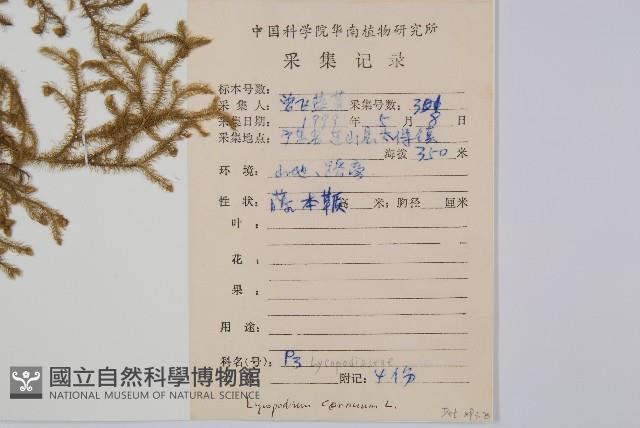 中国科学院华南植物研究所
采集记录
标本号数:
采集人: 曾飞 采集号数:
采集日期: 1999 年 5 月 8 日
采集地点:
海拔 350 米
环境: 山地、路旁
性状: 藤本 高 米; 胸径 厘米
叶:
花:
果:
用途:
科名(号): P3 Lycopodiaceae
附记: 4份
Lycopodium cernuum L.
國立自然科學博物館
NATIONAL MUSEUM OF NATURAL SCIENCE